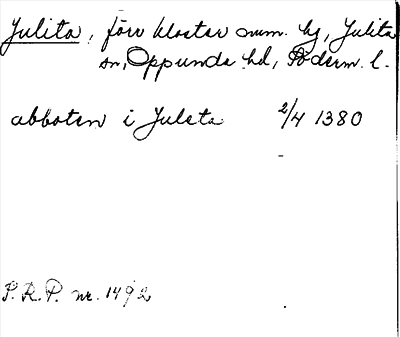 Julita, förv kloster num. hg, Julita
sn, Oppunda hd, Söderm. l.
abboten i Juleta 2/4 1380
S.R.P. nr. 1492